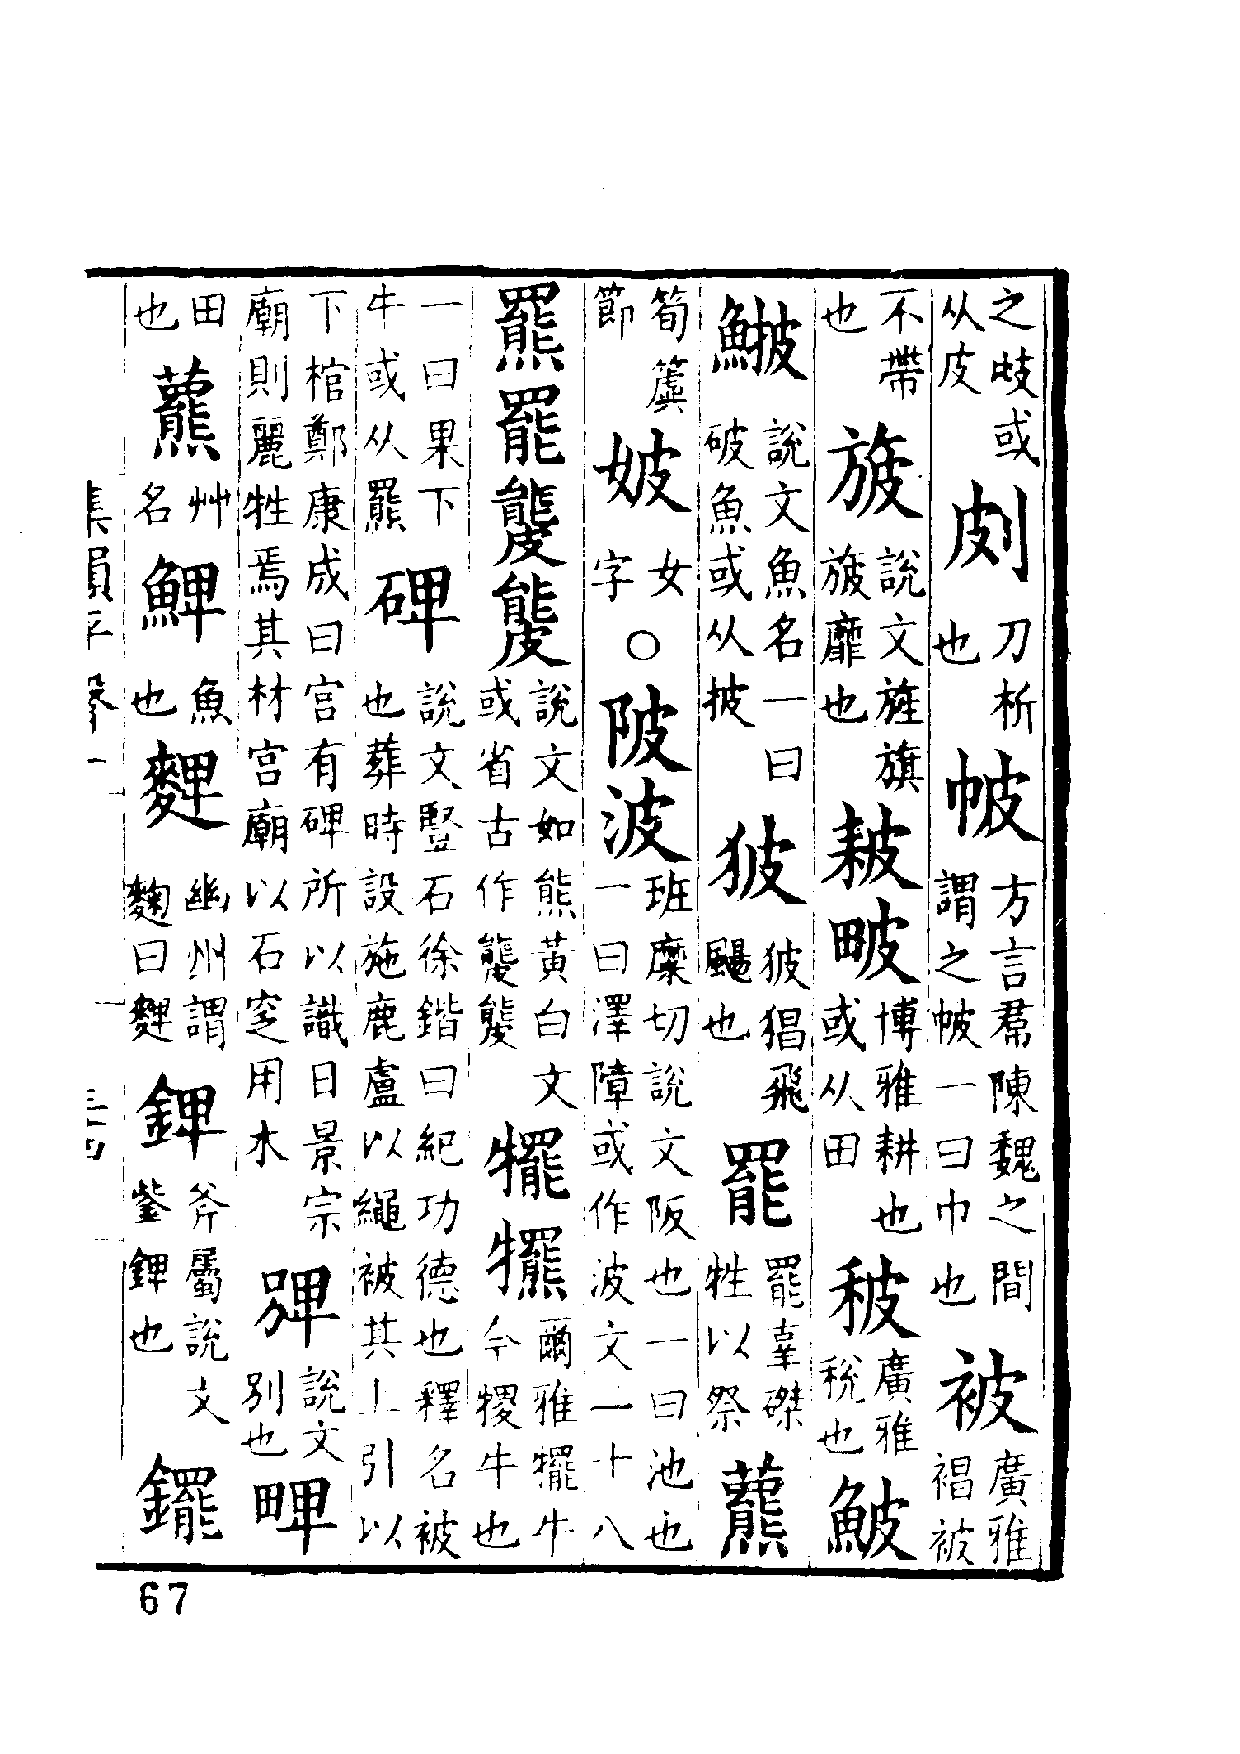 之歧或从皮 㓟 刀析也 帔 方言帬陳魏之間謂之帔一曰巾也 被 廣雅裮被
不帶也 旇 說文旌旗旇靡也 耚 博雅耕也或从田 秛 廣雅稅也 鮍
說文魚名一曰破魚或从披 狓 狓猖飛颺也 罷 罷辜磔牲以祭 藣
筍簴節 女字 ○ 陂波 班糜切說文阪也一曰池也一曰澤障或作波文一十八
羆罷 說文如熊黃白文或省古作 犤 爾雅犤牛今㹎牛也
一曰果下牛或从羆 碑 說文豎石徐鍇曰紀功德也釋名被也葬時設施鹿盧以繩被其上引以
下棺鄭康成曰宮有碑所以識日景宗廟則麗牲焉其材宮廟以石窆用木 說文別也
田也 藣 艸名 魚也 䴽 幽州謂麴曰䴽 錍 斧屬說文鈭錍也 䥯
集韻平聲一
67